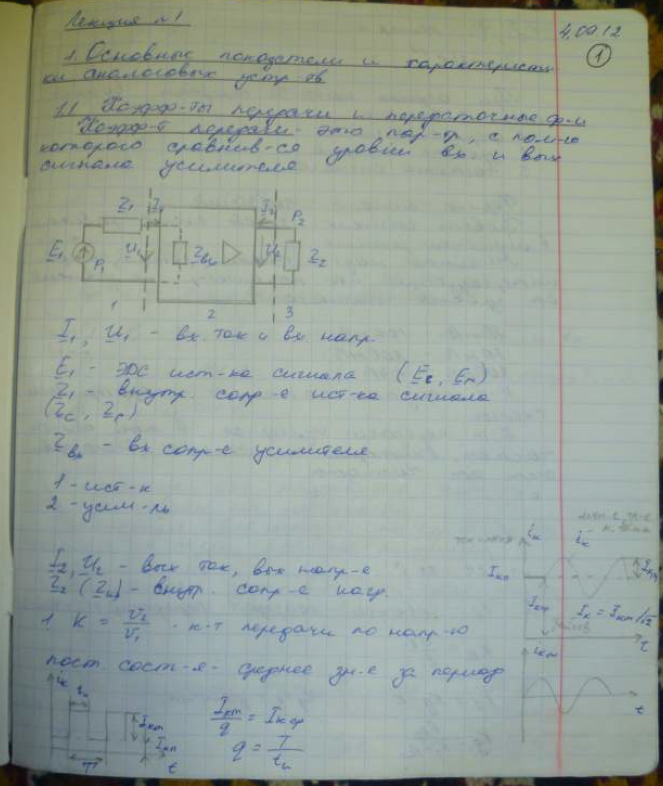 Лекция №1
4.09.12
1
1. Основные показатели и характеристи
ки аналоговых устр-тв
1.1 Коэфф-ты передачи и передаточные ф-и
Коэфф-т передачи - это пар-р, с пом-ю
которого сравнив-ся уровни вх. и вых
сигнала усилителя
Z1 I1 I2 P2
E1 P1 U1 Zвх U2 Z2
1 2 3
I1, U1 - вх. ток и вх напр.
E1 - ЭДС ист-ка сигнала (Eс, Eг)
Z1 - внутр. сопр-е ист-ка сигнала
(Zс, Zг)
Zвх - вх сопр-е усилителя
1 - ист-к
2 - усил-ль
I2, U2 - вых ток, вых напр-е
Z2 (Zн) - внутр. сопр-е нагр.
1. K = U2/U1 - к-т передачи по напр-ю
пост. сост-я - среднее зн-е за период
iк tи Iкm Iкп T t
Iкm/q = Iк ср
q = T/tи
iк iк
Iкп Iкm
Iср Iк = Iкm/√2
t
iкm
t